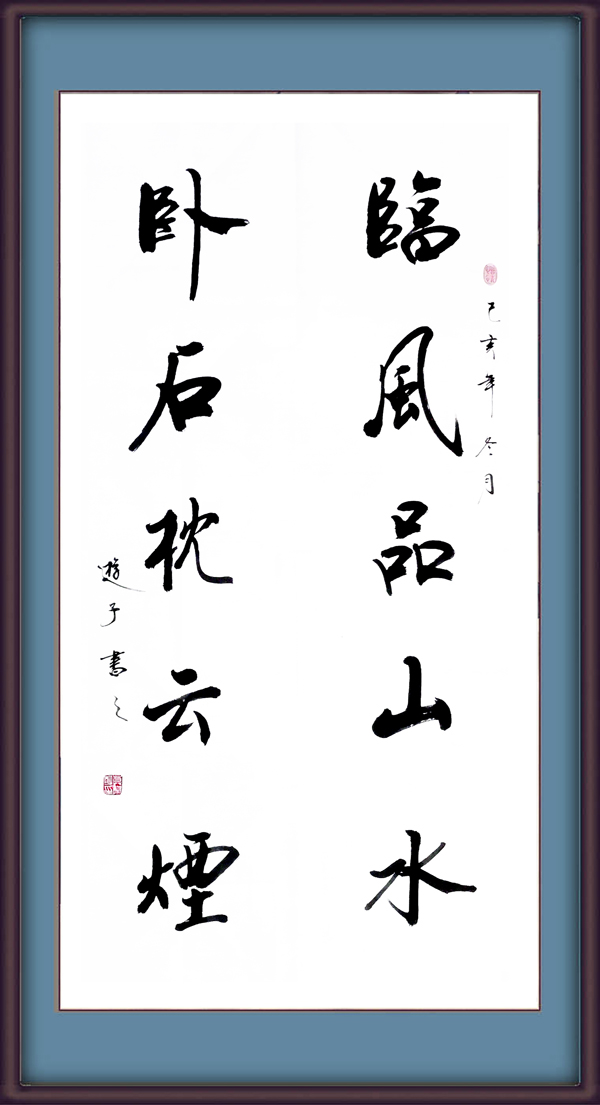 己亥年冬月
臨風品山水
卧石枕云煙
遊子書之